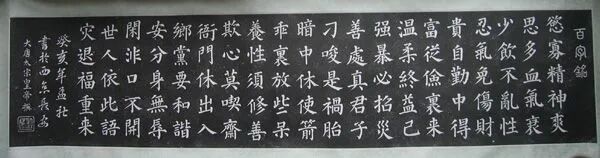 百字銘
慾寡精神爽
思多血氣衰
少飲不亂性
忍氣免傷財
貴自勤中得
富從儉裏來
溫柔終益己
强暴必招災
善處真君子
刁唆是禍胎
暗中休使箭
乖裏放些呆
養性須修善
欺心莫喫齋
衙門休出入
鄉黨要和諧
安分身無辱
閑非口不開
世人依此語
災退福重來
癸亥年孟
書於西京長安
大唐太宗皇帝撰